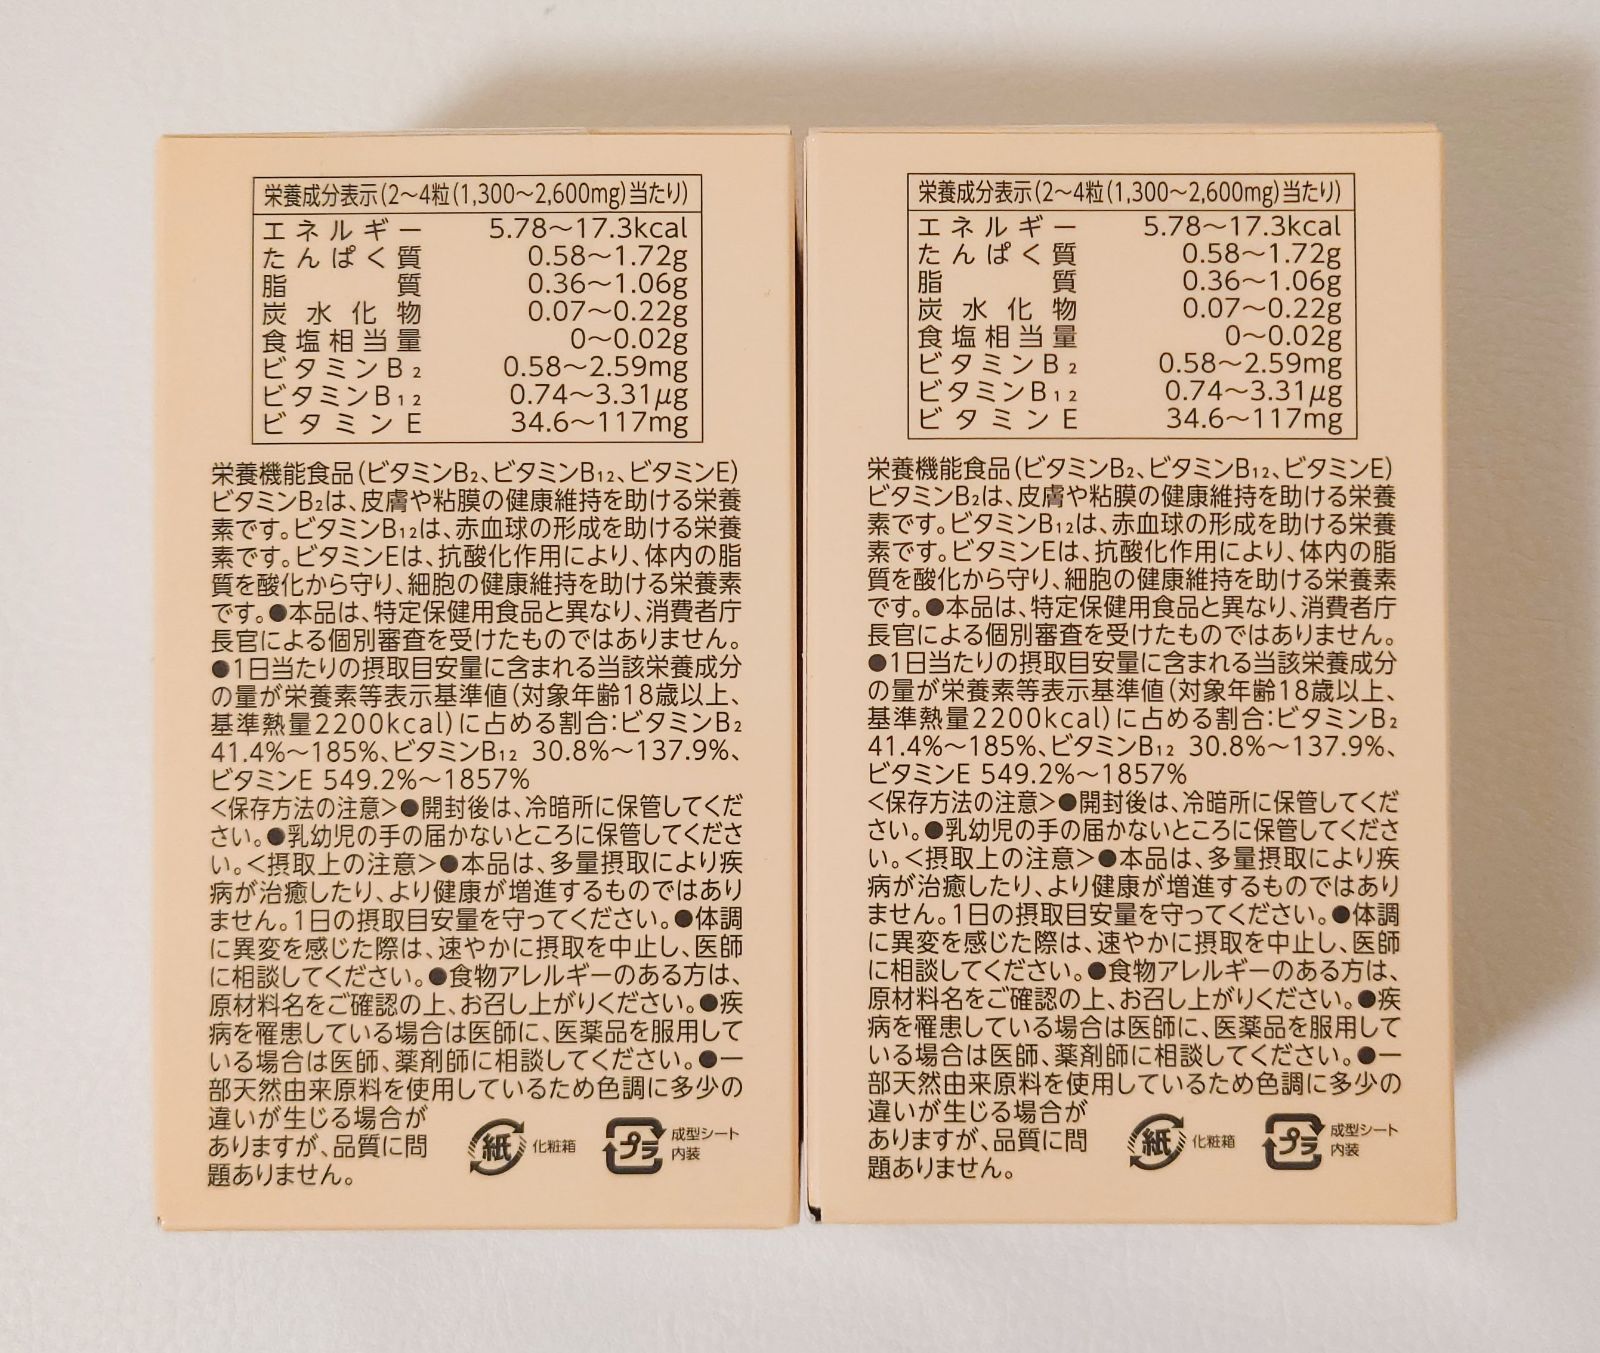 栄養成分表示(2〜4粒(1,300〜2,600mg)当たり)
エネルギー 5.78〜17.3kcal
たんぱく質 0.58〜1.72g
脂質 0.36〜1.06g
炭水化物 0.07〜0.22g
食塩相当量 0〜0.02g
ビタミンB₂ 0.58〜2.59mg
ビタミンB₁₂ 0.74〜3.31μg
ビタミンE 34.6〜117mg
栄養機能食品(ビタミンB₂、ビタミンB₁₂、ビタミンE)
ビタミンB₂は、皮膚や粘膜の健康維持を助ける栄養
素です。ビタミンB₁₂は、赤血球の形成を助ける栄養
素です。ビタミンEは、抗酸化作用により、体内の脂
質を酸化から守り、細胞の健康維持を助ける栄養素
です。●本品は、特定保健用食品と異なり、消費者庁
長官による個別審査を受けたものではありません。
●1日当たりの摂取目安量に含まれる当該栄養成分
の量が栄養素等表示基準値(対象年齢18歳以上、
基準熱量2200kcal)に占める割合:ビタミンB₂
41.4%〜185%、ビタミンB₁₂ 30.8%〜137.9%、
ビタミンE 549.2%〜1857%
<保存方法の注意>●開封後は、冷暗所に保管してくだ
さい。●乳幼児の手の届かないところに保管してくださ
い。<摂取上の注意>●本品は、多量摂取により疾
病が治癒したり、より健康が増進するものではあり
ません。1日の摂取目安量を守ってください。●体調
に異変を感じた際は、速やかに摂取を中止し、医師
に相談してください。●食物アレルギーのある方は、
原材料名をご確認の上、お召し上がりください。●疾
病を罹患している場合は医師に、医薬品を服用して
いる場合は医師、薬剤師に相談してください。●一
部天然由来原料を使用しているため色調に多少の
違いが生じる場合が
ありますが、品質に問
題ありません。
紙 化粧箱
プラ 成型シート
内装
栄養成分表示(2〜4粒(1,300〜2,600mg)当たり)
エネルギー 5.78〜17.3kcal
たんぱく質 0.58〜1.72g
脂質 0.36〜1.06g
炭水化物 0.07〜0.22g
食塩相当量 0〜0.02g
ビタミンB₂ 0.58〜2.59mg
ビタミンB₁₂ 0.74〜3.31μg
ビタミンE 34.6〜117mg
栄養機能食品(ビタミンB₂、ビタミンB₁₂、ビタミンE)
ビタミンB₂は、皮膚や粘膜の健康維持を助ける栄養
素です。ビタミンB₁₂は、赤血球の形成を助ける栄養
素です。ビタミンEは、抗酸化作用により、体内の脂
質を酸化から守り、細胞の健康維持を助ける栄養素
です。●本品は、特定保健用食品と異なり、消費者庁
長官による個別審査を受けたものではありません。
●1日当たりの摂取目安量に含まれる当該栄養成分
の量が栄養素等表示基準値(対象年齢18歳以上、
基準熱量2200kcal)に占める割合:ビタミンB₂
41.4%〜185%、ビタミンB₁₂ 30.8%〜137.9%、
ビタミンE 549.2%〜1857%
<保存方法の注意>●開封後は、冷暗所に保管してくだ
さい。●乳幼児の手の届かないところに保管してくださ
い。<摂取上の注意>●本品は、多量摂取により疾
病が治癒したり、より健康が増進するものではあり
ません。1日の摂取目安量を守ってください。●体調
に異変を感じた際は、速やかに摂取を中止し、医師
に相談してください。●食物アレルギーのある方は、
原材料名をご確認の上、お召し上がりください。●疾
病を罹患している場合は医師に、医薬品を服用して
いる場合は医師、薬剤師に相談してください。●一
部天然由来原料を使用しているため色調に多少の
違いが生じる場合が
ありますが、品質に問
題ありません。
紙 化粧箱
プラ 成型シート
内装